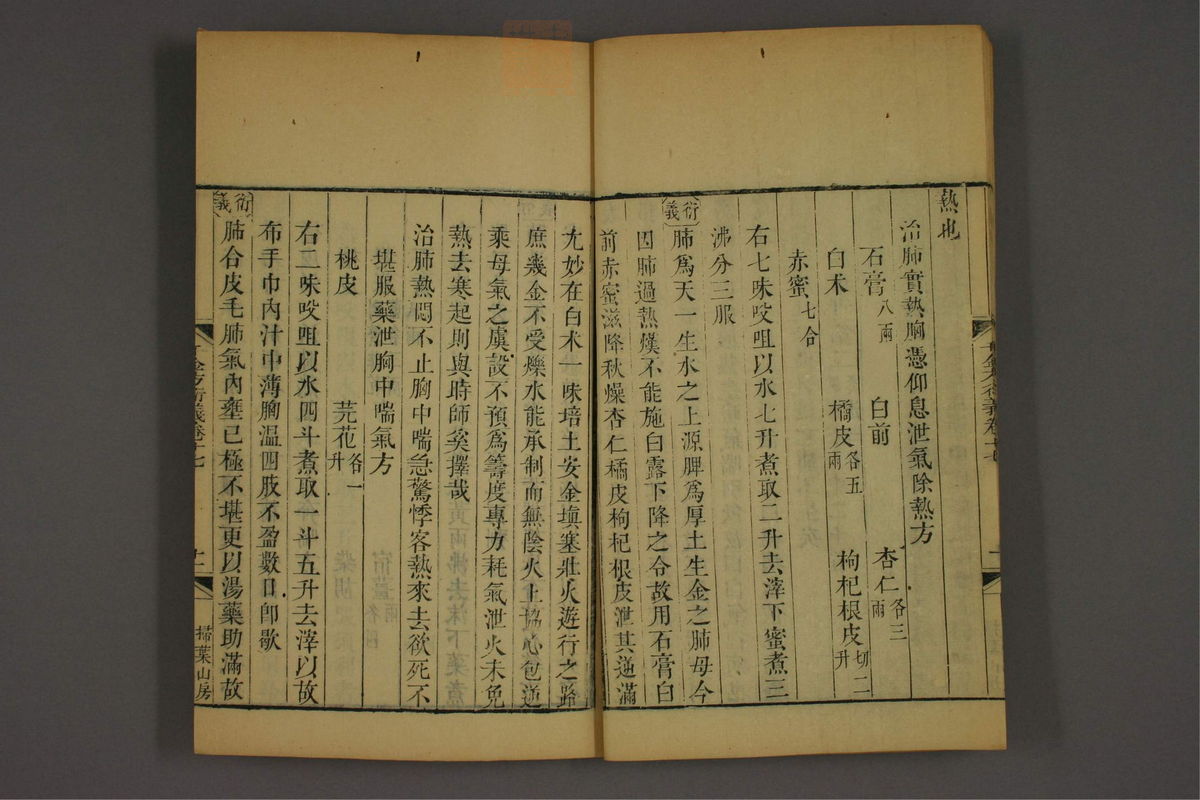 熱也
治肺實熱胸憑仰息泄氣除熱方
石膏八兩 白前 杏仁各三兩
白术 橘皮各五兩 枸杞根皮切二升
赤蜜七合
右七味㕮咀以水七升煮取二升去滓下蜜煮三
沸分三服
衍義 肺爲天一生水之上源脾爲厚土生金之肺母今
因肺過熱熯不能施白露下降之令故用石膏白
前赤蜜滋降秋燥杏仁橘皮枸杞根皮泄其逆滿
尤妙在白术一味培土安金塡塞壯火遊行之路
庶幾金不受爍水能承制而無陰火上協心包逆
乘母氣之虞設不預爲籌度專力耗氣泄火未免
熱去寒起則與時師奚擇哉
治肺熱悶不止胸中喘急驚悸客熱來去欲死不
堪服藥泄胸中喘氣方
桃皮 芫花各一升
右二味㕮咀以水四斗煮取一斗五升去滓以故
布手巾內汁中薄胸溫四肢不盈數日卽歇
衍義 肺合皮毛肺氣內壅已極不堪更以湯藥助滿故
千金方衍義卷十七
十二
掃葉山房